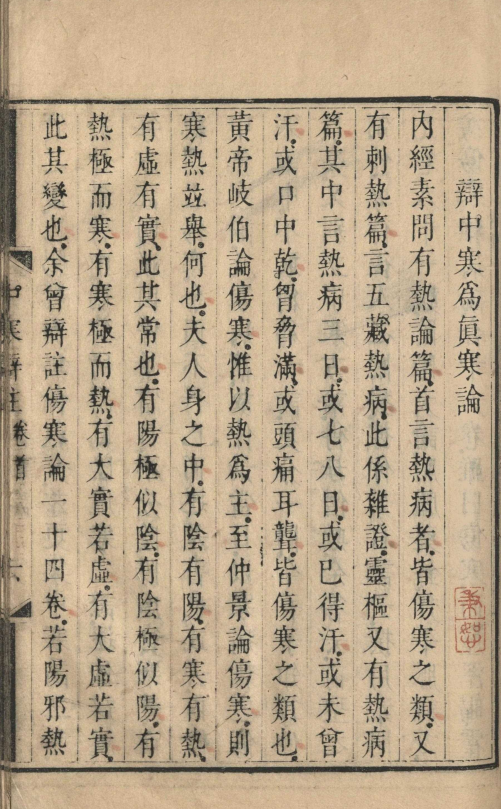 辯中寒爲眞寒論
內經素問有熱論篇首言熱病者皆傷寒之類又
有刺熱篇言五藏熱病此係雜證靈樞又有熱病
篇其中言熱病三日或七八日或已得汗或未曾
汗或口中乾胷脅滿或頭痛耳聾皆傷寒之類也
黃帝岐伯論傷寒惟以熱爲主至仲景論傷寒則
寒熱並舉何也夫人身之中有陰有陽有寒有熱
有虛有實此其常也有陽極似陰有陰極似陽有
熱極而寒有寒極而熱有大實若虛有大虛若實
此其變也余曾辯註傷寒論一十四卷若陽邪熱
中寒辯註 卷首 六